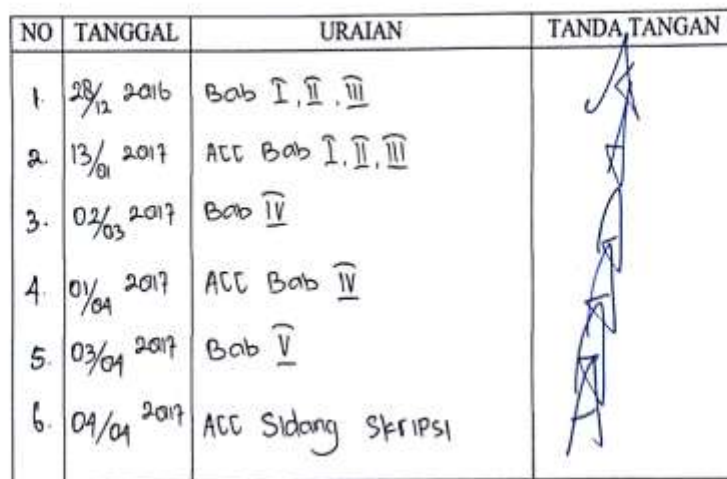 NO TANGGAL URAIAN TANDA TANGAN
1. 28/12 2016 Bab I, II, III
2. 13/01 2017 ACC Bab I, II, III
3. 02/03 2017 Bab IV
4. 01/04 2017 ACC Bab IV
5. 03/04 2017 Bab V
6. 04/04 2017 ACC Sidang Skripsi